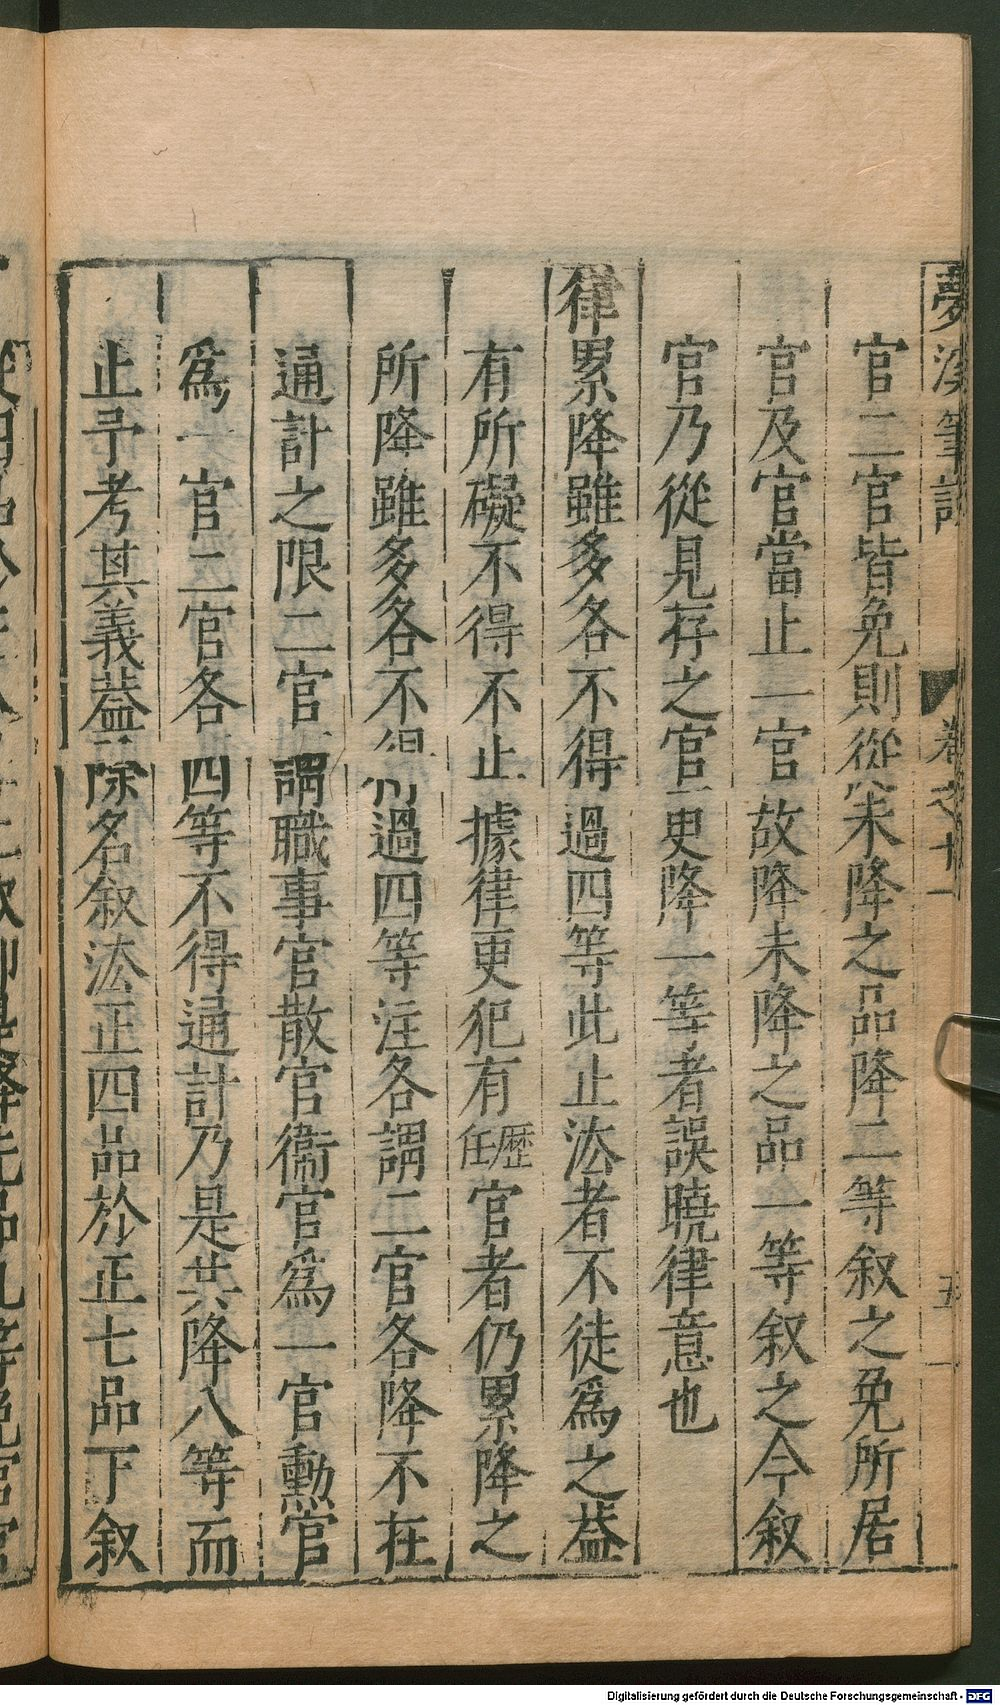 夢溪筆談 卷之十一 五
官二官皆免則從未降之品降二等叙之免所居
官及官當止一官故降未降之品一等叙之今叙
官乃從見存之官更降一等者誤曉律意也
律累降雖多各不得過四等此止法者不徒為之葢
有所礙不得不止據律更犯有歷任官者仍累降之
所降雖多各不得過四等注各謂二官各降不在
通計之限二官謂職事官散官衞官爲一官勲官
爲一官二官各四等不得通計乃是共降八等而
止予考其義葢除名叙法正四品於正七品下叙
Digitalisierung gefördert durch die Deutsche Forschungsgemeinschaft - DFG